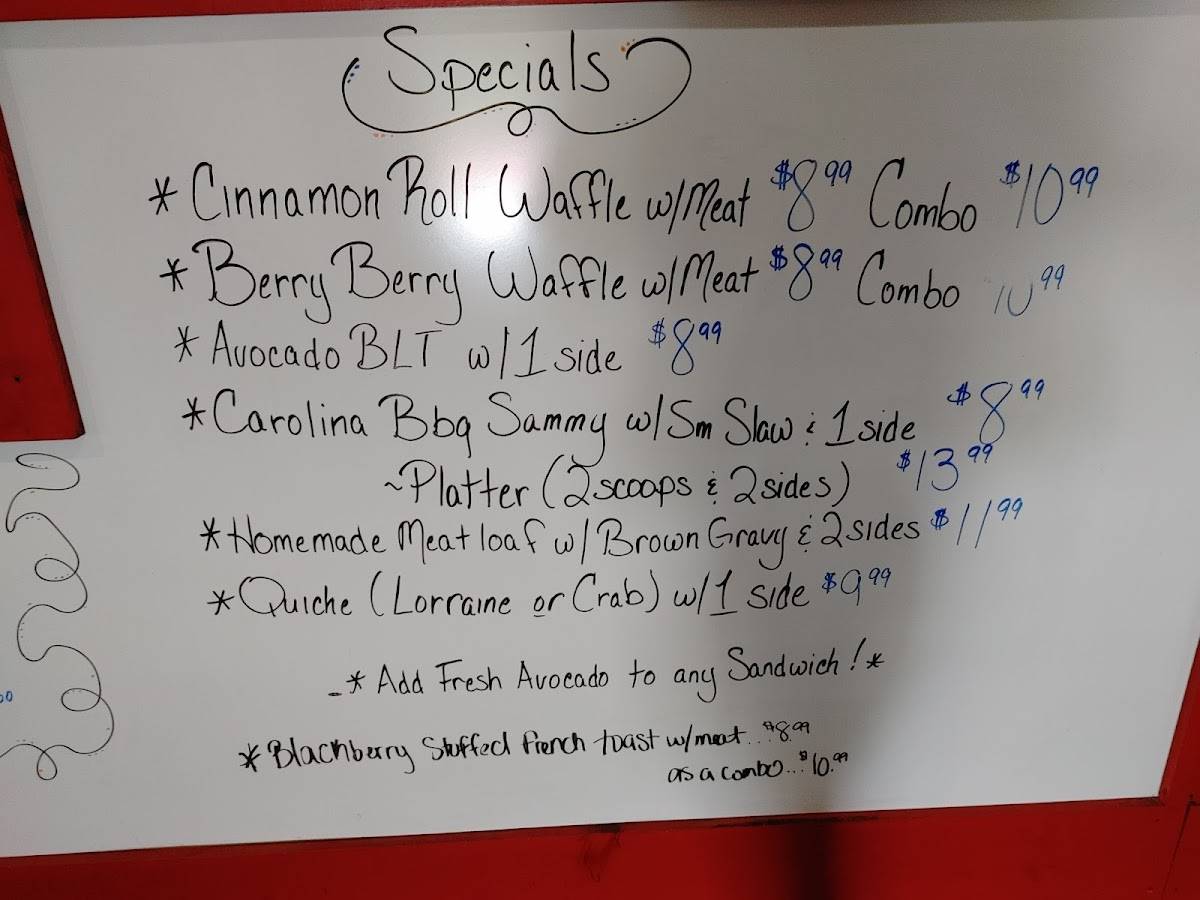 Specials
* Cinnamon Roll Waffle w/Meat $8.99 Combo $10.99
* Berry Berry Waffle w/Meat $8.99 Combo 10.99
* Avocado BLT w/1 side $8.99
* Carolina Bbq Sammy w/Sm Slaw & 1 side $8.99
~Platter (2 scoops & 2 sides) $13.99
* Homemade Meatloaf w/ Brown Gravy & 2 sides $11.99
* Quiche (Lorraine or Crab) w/1 side $9.99
-* Add Fresh Avocado to any Sandwich! *
* Blackberry Stuffed french toast w/meat...$8.99
as a combo...$10.99